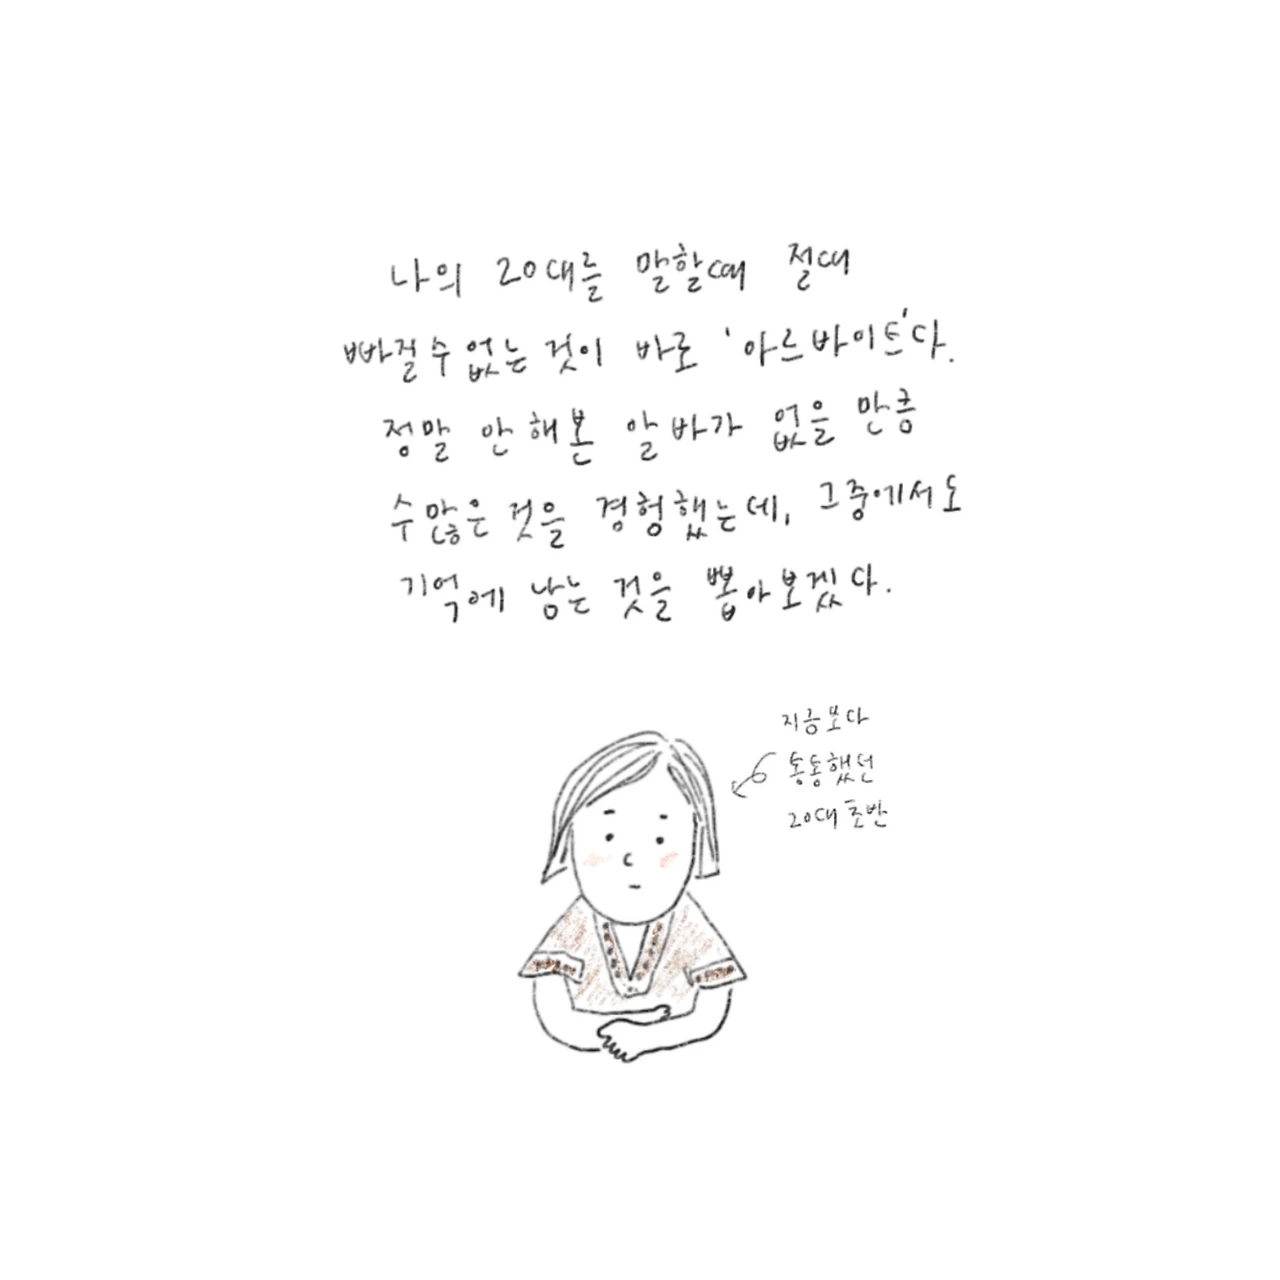 나의 20대를 말할때 절대
빠질수 없는 것이 바로 '아르바이트'다.
정말 안 해본 알바가 없을 만큼
수많은 것을 경험했는데, 그중에서도
기억에 남는 것을 뽑아보겠다.
지금보다
통통했던
20대 초반